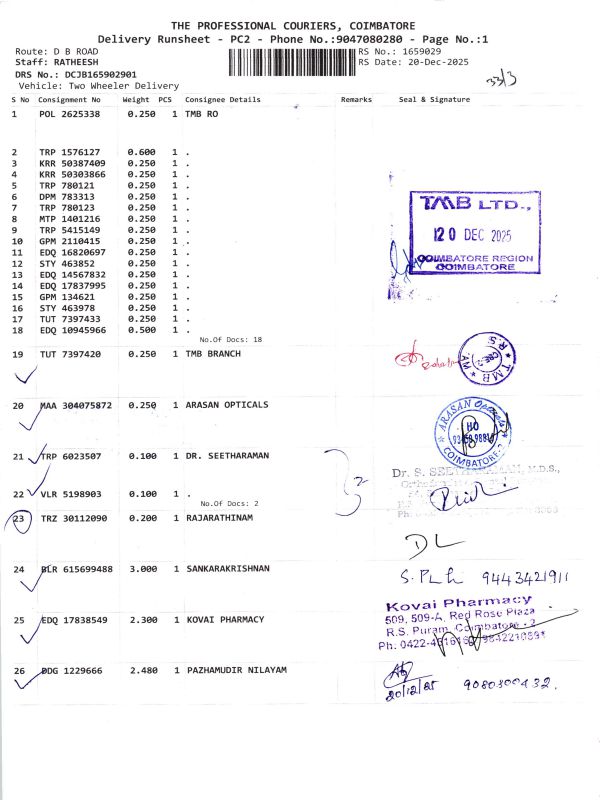 THE PROFESSIONAL COURIERS, COIMBATORE
Delivery Runsheet - PC2 - Phone No.:9047080280 - Page No.:1
Route: D B ROAD RS No.: 1659029
Staff: RATHEESH RS Date: 20-Dec-2025
DRS No.: DCJB165902901
Vehicle: Two Wheeler Delivery 33/3
S No Consignment No Weight PCS Consignee Details Remarks Seal & Signature
1 POL 2625338 0.250 1 TMB RO
2 TRP 1576127 0.600 1 .
3 KRR 50387409 0.250 1 .
4 KRR 50303866 0.250 1 .
5 TRP 780121 0.250 1 .
6 DPM 783313 0.250 1 .
7 TRP 780123 0.250 1 .
8 MTP 1401216 0.250 1 .
9 TRP 5415149 0.250 1 .
10 GPM 2110415 0.250 1 .
11 EDQ 16820697 0.250 1 .
12 STY 463852 0.250 1 .
13 EDQ 14567832 0.250 1 .
14 EDQ 17837995 0.250 1 .
15 GPM 134621 0.250 1 .
16 STY 463978 0.250 1 .
17 TUT 7397433 0.250 1 .
18 EDQ 10945966 0.500 1 .
TMB LTD.,
20 DEC 2025
COIMBATORE REGION
COIMBATORE
No.Of Docs: 18
19 TUT 7397420 0.250 1 TMB BRANCH
TMB R.S.
20 MAA 304075872 0.250 1 ARASAN OPTICALS
ARASAN Opticals
HO
COIMBATORE-2
21 TRP 6023507 0.100 1 DR. SEETHARAMAN
Dr. S. SEETHARAMAN, M.D.S.,
22 VLR 5198903 0.100 1 .
No.Of Docs: 2
23 TRZ 30112090 0.200 1 RAJARATHINAM
DL
24 BLR 615699488 3.000 1 SANKARAKRISHNAN
9443421911
25 EDQ 17838549 2.300 1 KOVAI PHARMACY
Kovai Pharmacy
509, 509-A, Red Rose Plaza
R.S. Puram, Coimbatore - 2
Ph: 0422-
26 DDG 1229666 2.480 1 PAZHAMUDIR NILAYAM
20/12/25